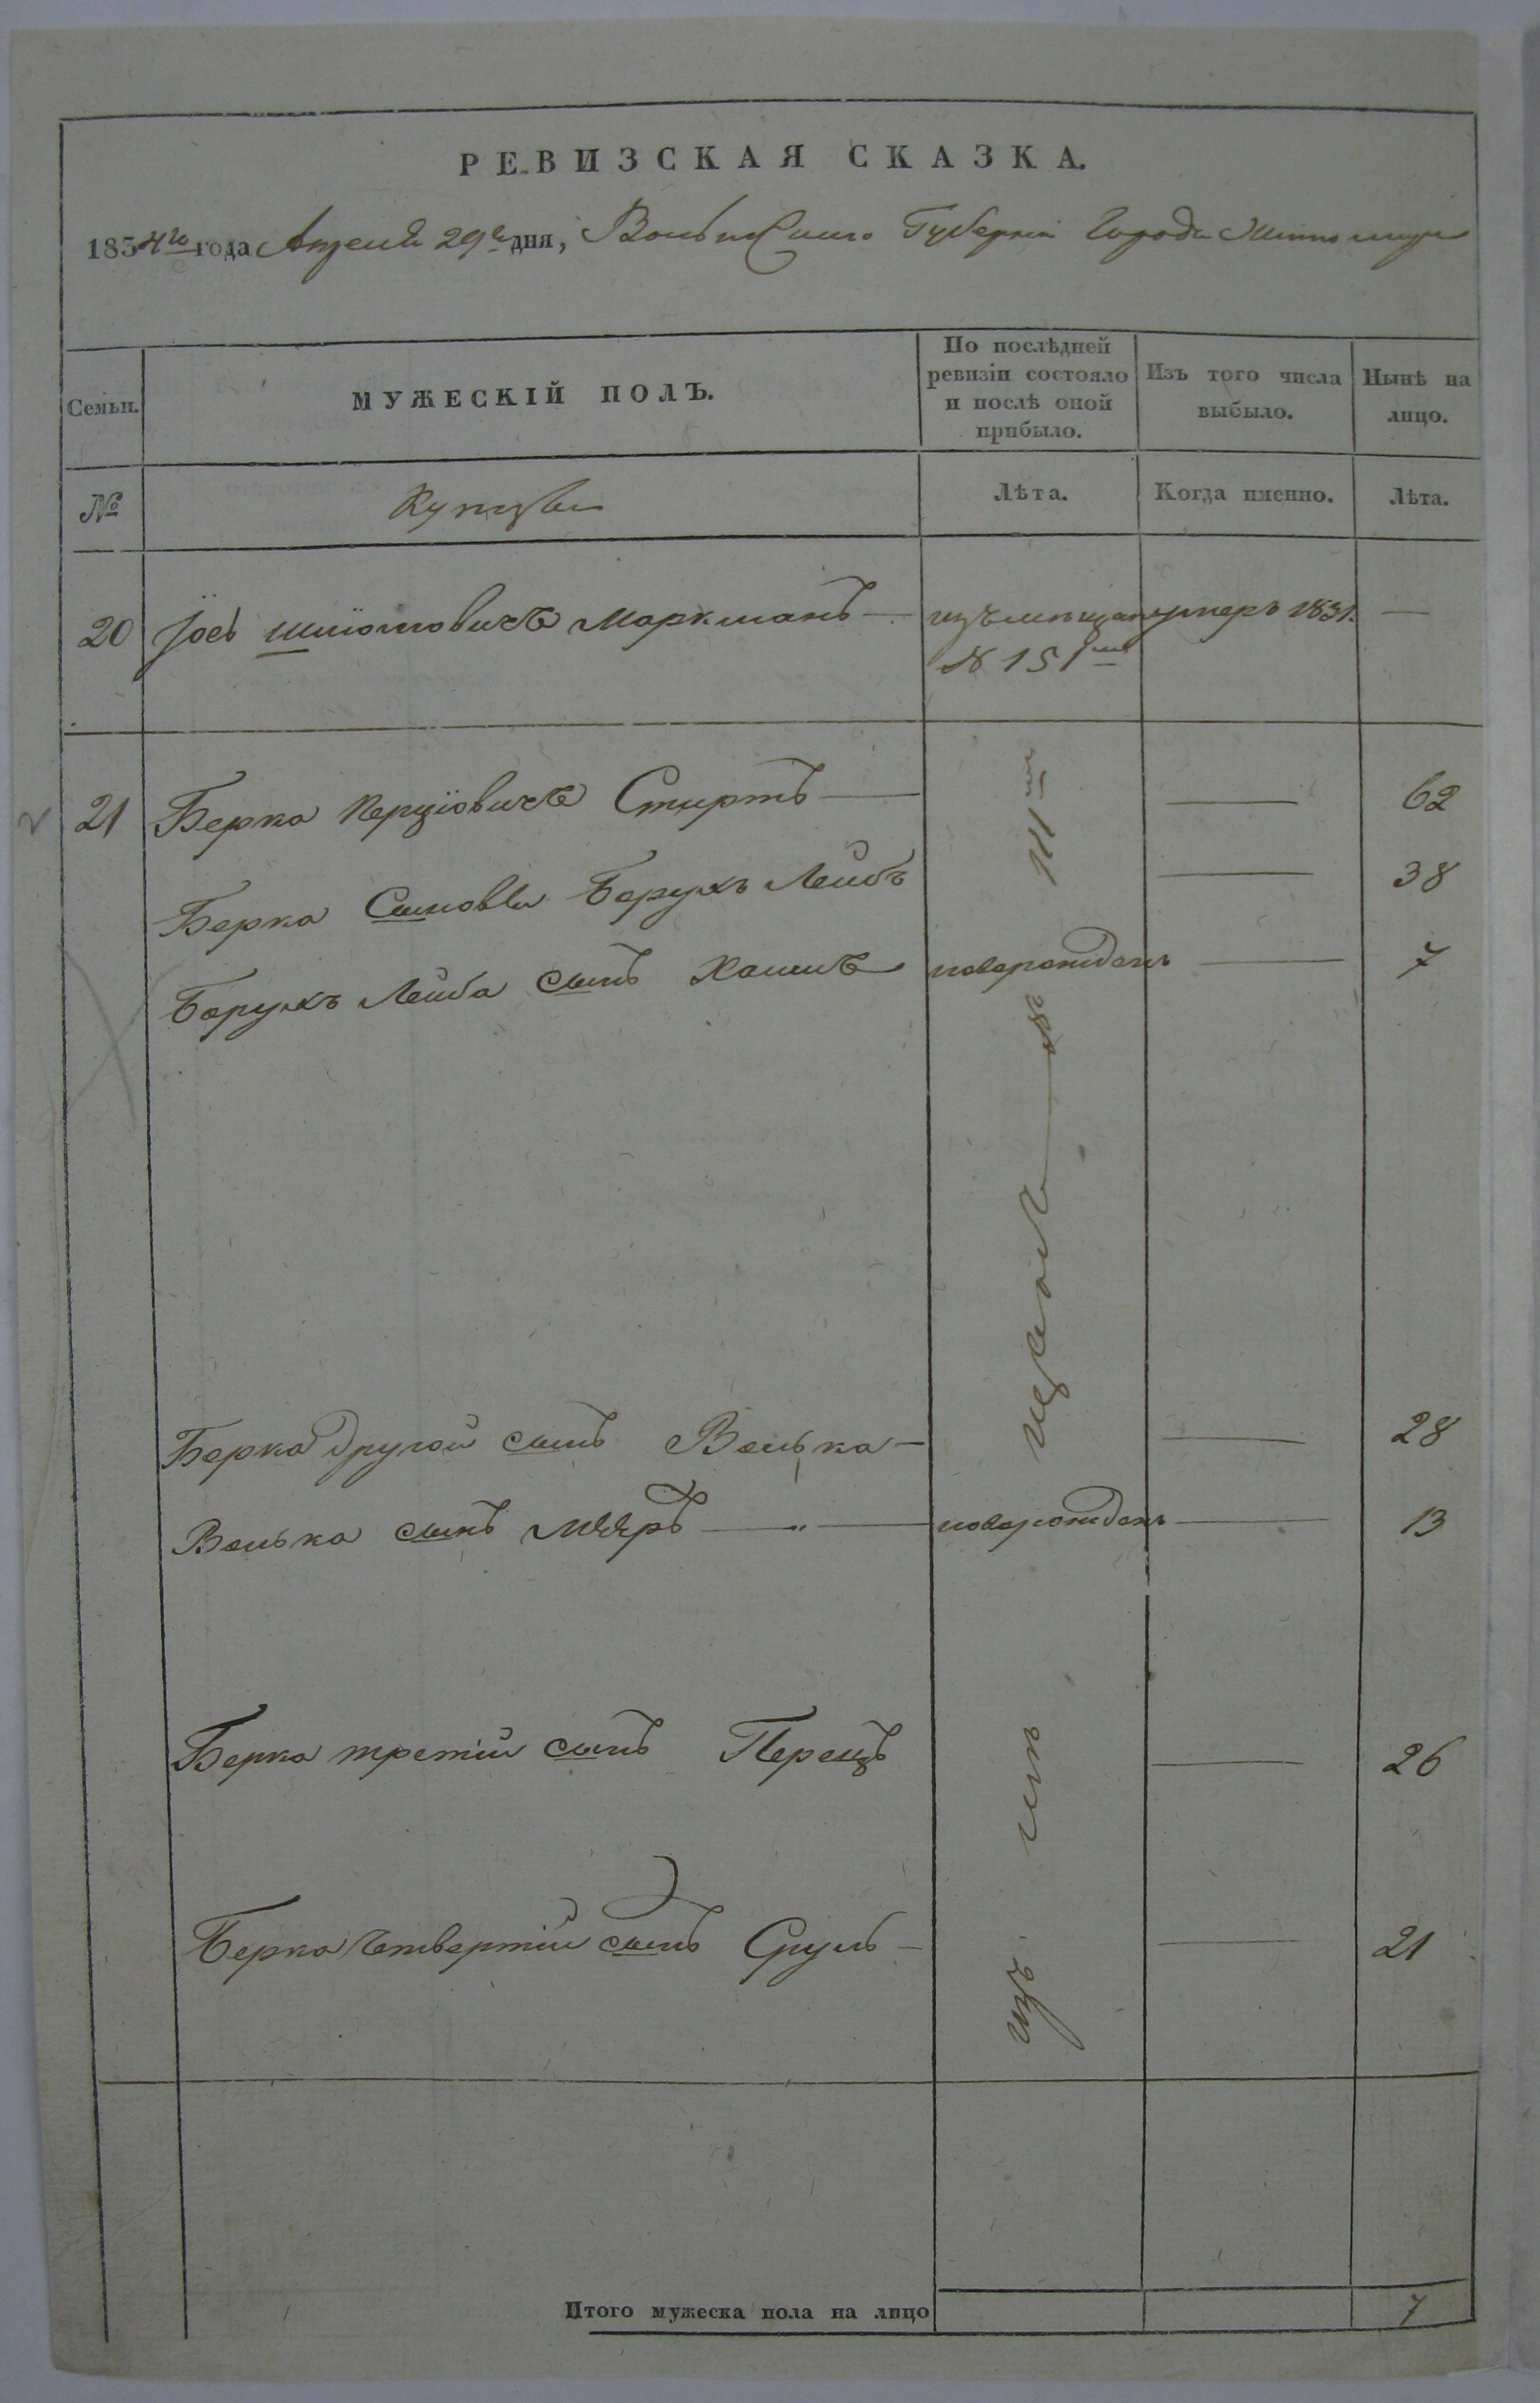 РЕВИЗСКАЯ СКАЗКА.
1854го года Апреля 29го дня, Волынской Губернии Города Житомира
Семьи.
МУЖЕСКІЙ ПОЛЪ.
По послѣдней ревизіи состояло и послѣ оной прибыло.
Изъ того числа выбыло.
Нынѣ на лицо.
№
Купцы
Лѣта.
Когда именно.
Лѣта.
20 Іось Маркманъ изъ мѣщан умеръ 1851.
№ 151
21 Берко Перціовичъ Стиртъ 62
Берка Сыновья Борухъ Лейбъ 38
Борухъ Лейба сынъ Хаимъ новорожденъ 7
Берка другой сынъ Волько 28
Волька сынъ Мееръ новорожденъ 13
Берка третій сынъ Перецъ 26
Берка четвертій сынъ Сруль 21
изъ мѣщанъ № 111
Итого мужеска пола на лицо 7